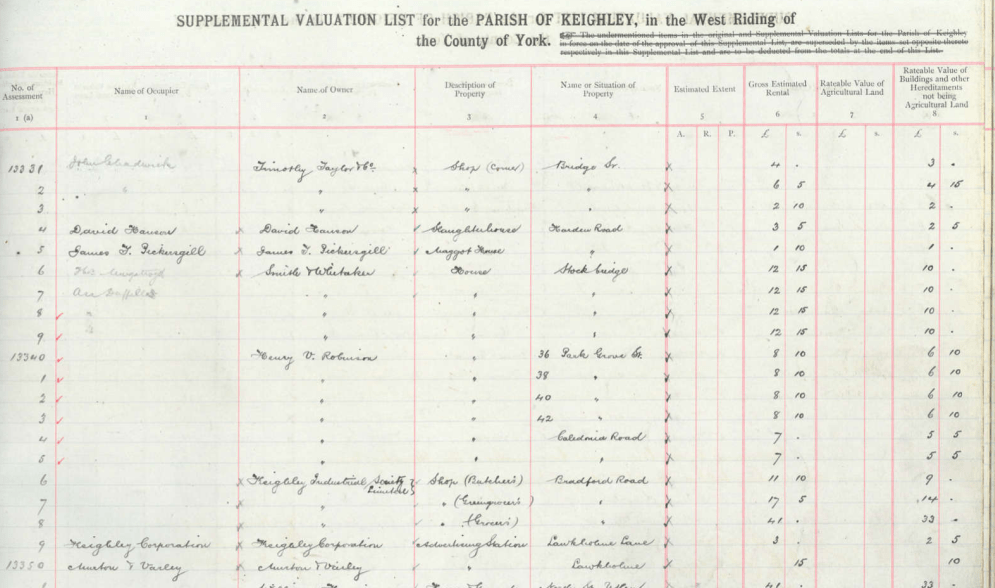 SUPPLEMENTAL VALUATION LIST for the PARISH OF KEIGHLEY, in the West Riding of
the County of York. The undermentioned items in the original and Supplemental Valuation Lists for the Parish of Keighley
in force on the date of the approval of this Supplemental List, are superseded by the items set opposite thereto
respectively in this Supplemental List and are to be deducted from the totals at the end of this List.
No. of Assessment Name of Occupier Name of Owner Description of Property Name or Situation of Property Estimated Extent Gross Estimated Rental Rateable Value of Agricultural Land Rateable Value of Buildings and other Hereditaments not being Agricultural Land
1 (a) 1 2 3 4 5 6 7 8
A. R. P. £ s. £ s. £ s.
13331 John Chadwick Timothy Taylor & Co. x Shop (Corner) Bridge St. x 4 . 3 .
2 " " x " " x 6 5 4 15
3 " x " " x 2 10 2 .
4 David Hanson x David Hanson ✓ Slaughterhouse Harden Road x 3 5 2 5
5 James T. Pickersgill x James T. Pickersgill ✓ Maggot House " x 1 10 1 .
6 x Smith & Whitaker ✓ House Stockbridge x 12 15 10 .
7 " " " x 12 15 10 .
8 ✓ " " " " x 12 15 10 .
9 ✓ " " " x 12 15 10 .
13340 ✓ Henry V. Robinson " 36 Park Grove St. x 8 10 6 10
1 ✓ " " 38 " x 8 10 6 10
2 ✓ " " 40 " x 8 10 6 10
3 ✓ " " 42 " x 8 10 6 10
4 ✓ " " Caledonia Road x 7 . 5 5
5 ✓ " " " x 7 . 5 5
6 x Keighley Industrial Society Limited Shop (Butcher's) Bradford Road x 11 10 9 .
7 x " " (Greengrocer's) " x 17 5 14 .
8 x " ✓ " (Grocer's) " x 41 . 33 .
9 Keighley Corporation x Keighley Corporation ✓ Advertising Station Lawkholme Lane x 3 . 2 5
13350 Murton & Varley x Murton & Varley ✓ " Lawkholme x 15 10
41 . 33 .